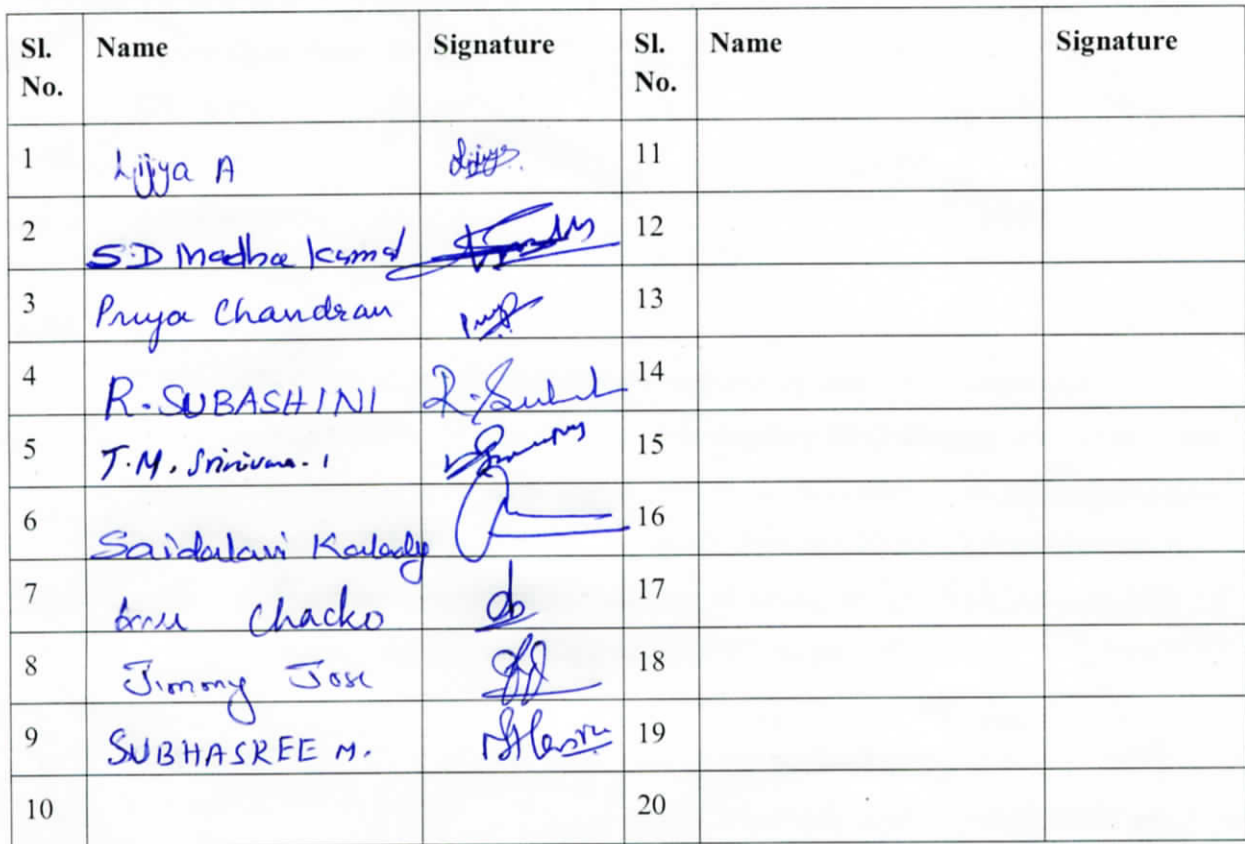 Sl. No. Name Signature Sl. No. Name Signature
1 Lijiya A 11
2 S.D Madhu Kumar 12
3 Priya Chandran 13
4 R. SUBASHINI R. 14
5 T.M. 15
6 Saidalavi Kalady 16
7 Chacko 17
8 Jimmy Jose 18
9 SUBHASREE M. 19
10 20